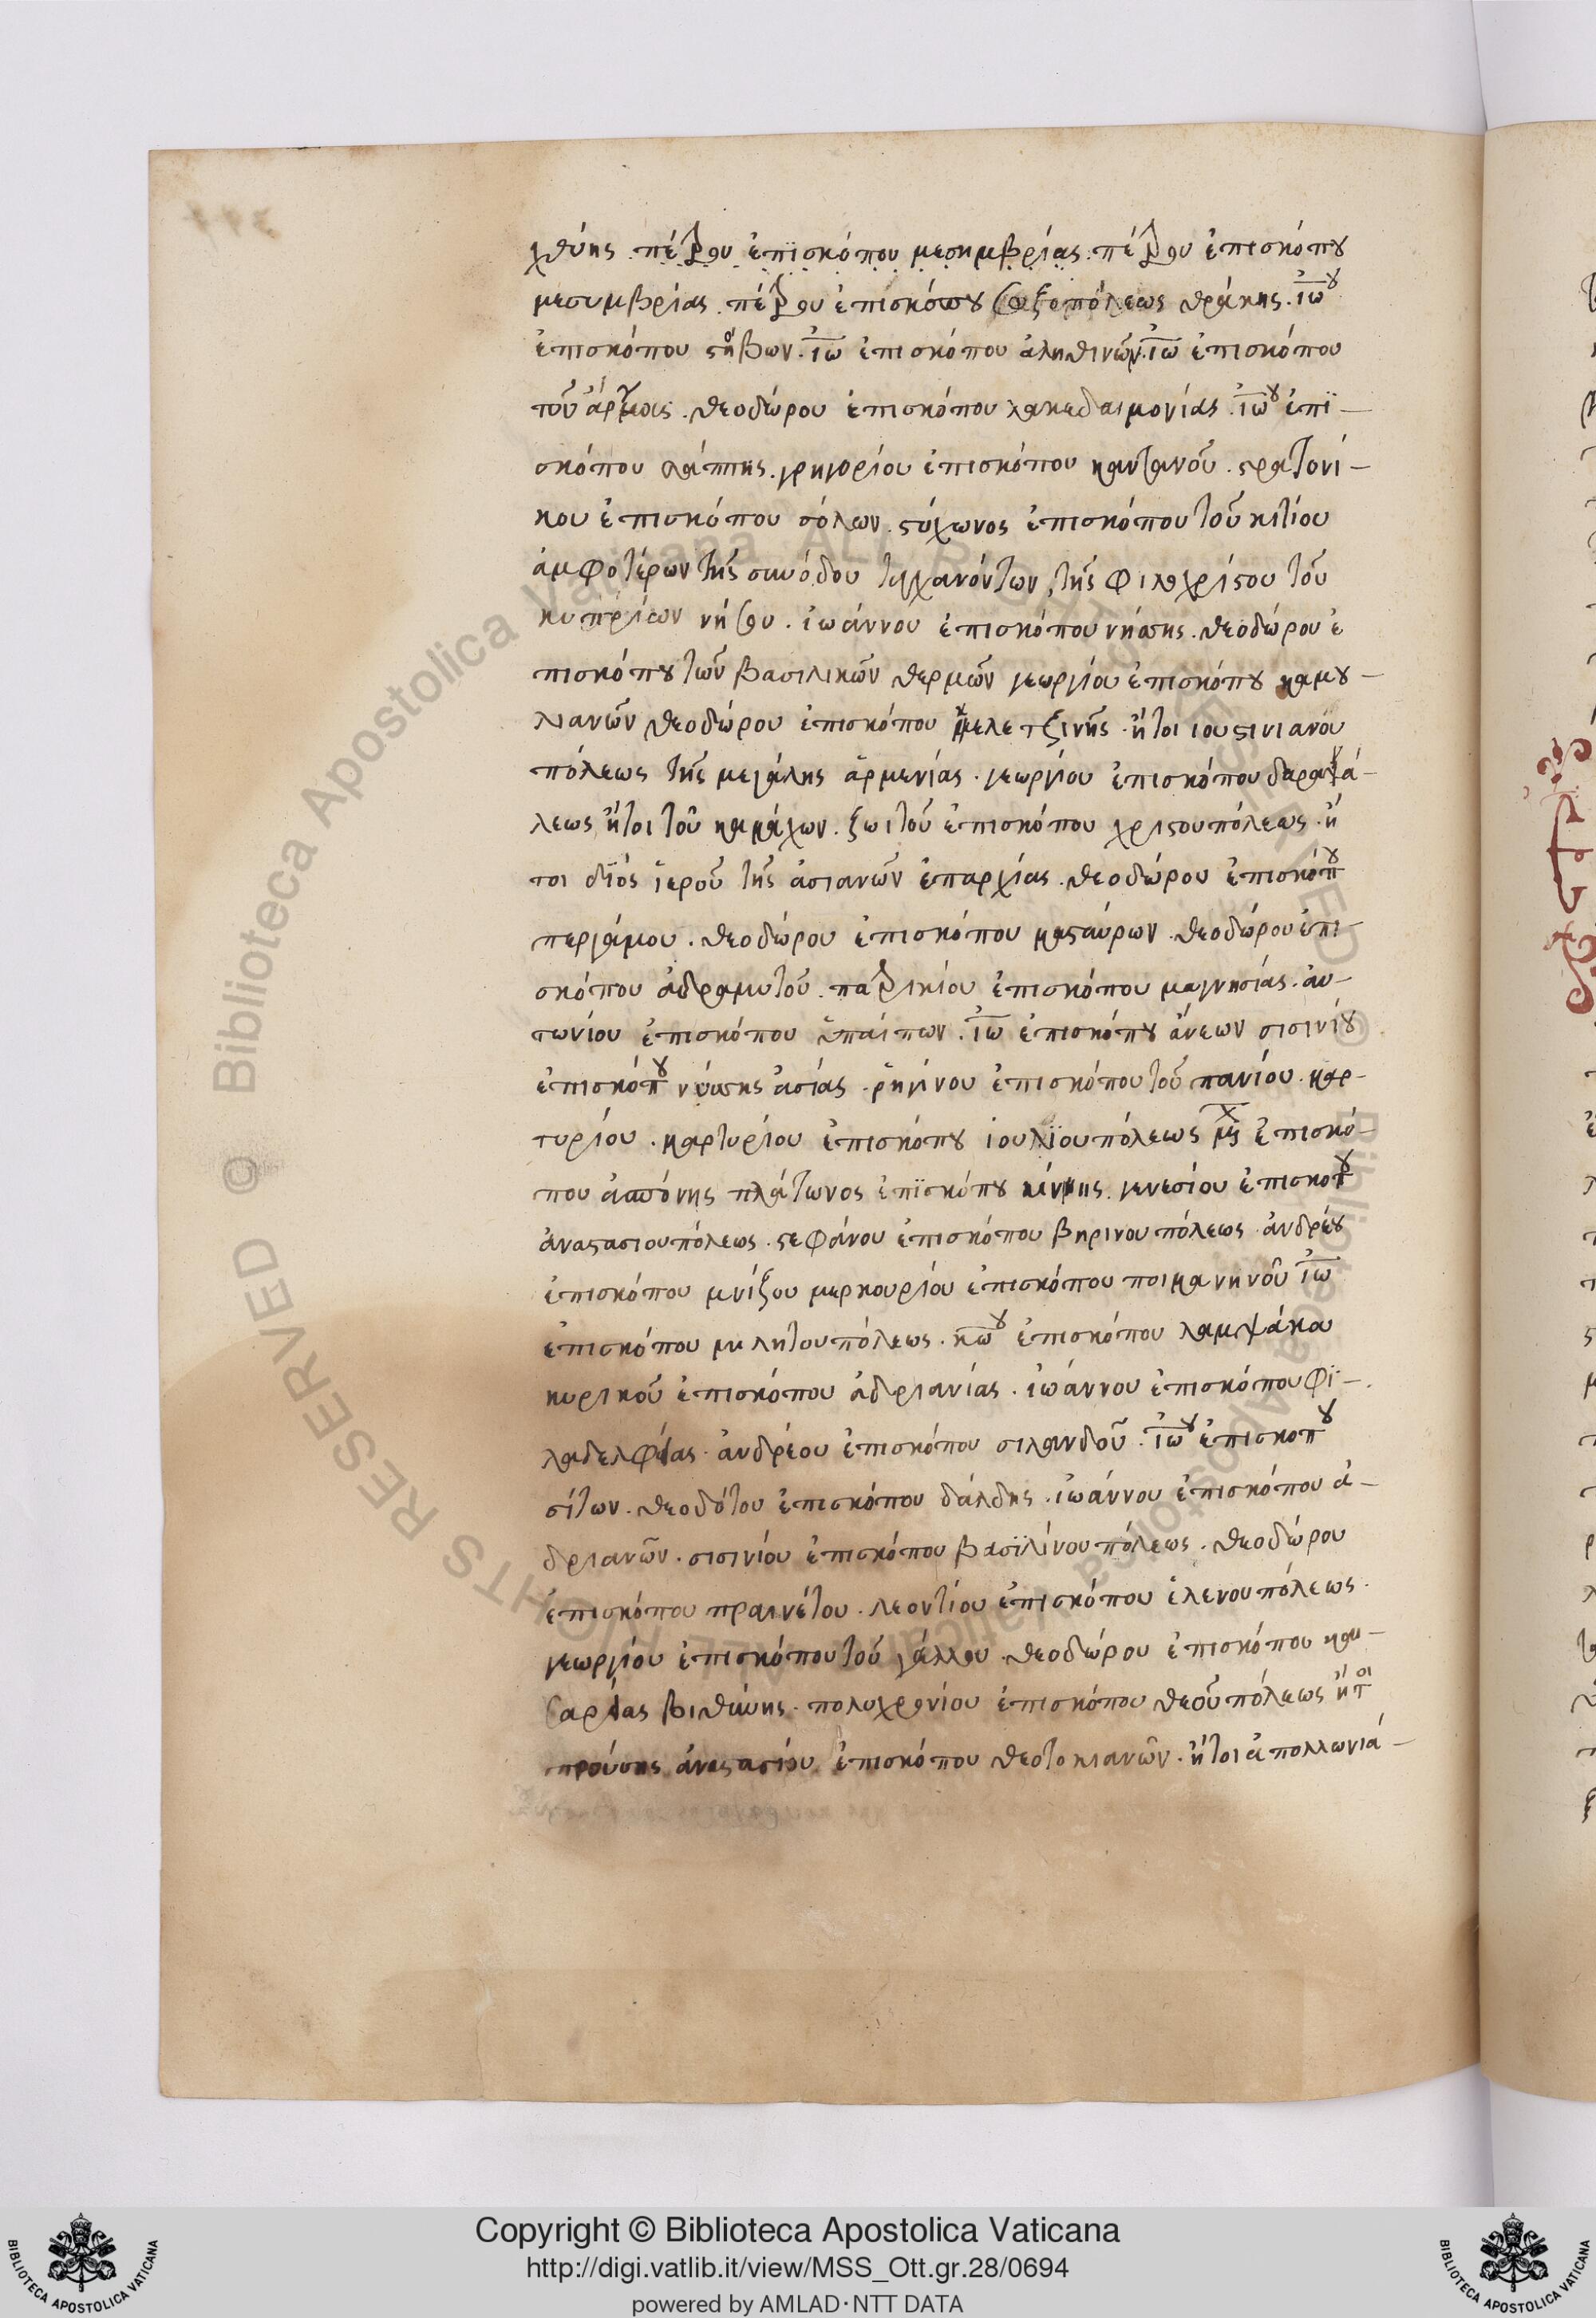 χθύης. πέτρου ἐπϊσκόπου μεσημβρίας. πέτρου ἐπισκόπου
μεσυμβρίας. πέτρου ἐπισκόπου σωζοπόλεως θράκης. ἰω
ἐπισκόπου ἰω ἐπισκόπου ἀληθινῶν. ἰω ἐπισκόπου
τοῦ θεοδώρου ἐπισκόπου λακεδαιμονίας. ἰω ἐπϊ-
σκόπου λάππης. γρηγορίου ἐπισκόπου καντανοῦ. στρατονί-
κου ἐπισκόπου σόλων. στύχωνος ἐπισκόπου τοῦ κιτίου
ἀμφοτέρων τῆς συνόδου τυγχανόντων, τῆς φιλοχρίστου τοῦ
κυπρίων νήσου. ἰωάννου ἐπισκόπου νήσσης. θεοδώρου ἐ
πισκόπου τῶν βασιλικῶν θερμῶν γεωργίου ἐπισκόπου καμου-
λιανῶν θεοδώρου ἐπισκόπου μελετζινῆς. ἤτοι ιουστινιανου
πόλεως τῆς μεγάλης ἀρμενίας. γεωργίου ἐπισκόπου
λεως ἤτοι τοῦ καμάχων. ζωιτοῦ ἐπισκόπου χριστουπόλεως. ἤ
τοι διὸς ἱεροῦ τῆς ἀσιανῶν ἐπαρχίας. θεοδώρου ἐπισκόπου
περγάμου. θεοδώρου ἐπισκόπου μασταύρων. θεοδώρου ἐπι-
σκόπου ἀδραμυτοῦ. πατρικίου ἐπισκόπου μαγνησίας. ἀν-
τωνίου ἐπισκόπου ὑπαίπων. ἰω ἐπισκόπου ἀνέων σισινίου
ἐπισκόπου νύσσης ἀσίας. ῥηγίνου ἐπισκόπου τοῦ πανίου. μαρ-
τυρίου. μαρτυρίου ἐπισκόπου ἰουλϊουπόλεως ἐπισκό-
που ἀσπόνης πλάτωνος ἐπϊσκόπου κίννης. γενεσίου ἐπισκοπου
ἀναστασιουπόλεως. στεφάνου ἐπισκόπου βηρινουπόλεως. ἀνδρέου
ἐπισκόπου μνίζου μερκουρίου ἐπισκόπου ποιμανηνοῦ ἰω
ἐπισκόπου μιλητουπόλεως. ἐπισκόπου λαμψάκου
κυρικοῦ ἐπισκόπου ἀδριανίας. ἰωάννου ἐπισκόπου φϊ-
λαδελφίας. ἀνδρέου ἐπισκόπου σιλανδοῦ. ἰω ἐπισκοπου
σίτων. θεοδότου ἐπισκόπου δάλδης. ἰωάννου ἐπισκόπου ἀ-
δριανῶν. σισινίου ἐπισκόπου βασϊλίνουπόλεως. θεοδώρου
ἐπισκόπου πραινέτου. λεοντίου ἐπισκόπου ἑλενουπόλεως.
γεωργίου ἐπισκόπου τοῦ γάλλου. θεοδώρου ἐπισκόπου και-
σαρίας βιθύνης. πολυχρονίου ἐπισκόπου θεοῦπόλεως ἤτοι
προύσης ἀναστασίου ἐπισκόπου θεοτοκιανῶν. ἤτοι ἀπολλωνιά-
Copyright © Biblioteca Apostolica Vaticana
http://digi.vatlib.it/view/MSS_Ott.gr.28/0694
powered by AMLAD·NTT DATA